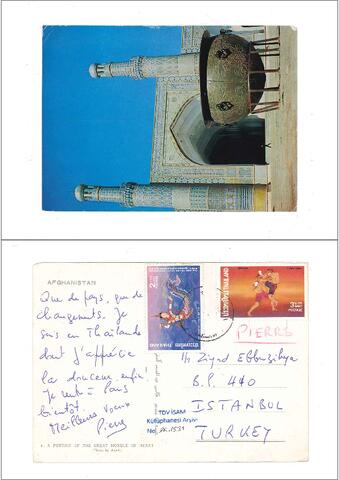 AFGHANISTAN
Que de pays, que de
changements. Je
suis en Thaïlande
dont j'apprécie
la douceur enfin!
Je rentre à Paris
bientôt.
Meilleurs vœux
Pierre
THAILAND
THAILAND
POSTAGE
PIERRE
Mr Ziyad Ebbuzziya
B.P. 440
ISTANBUL
TURKEY
TDV İSAM
Kütüphanesi Arşivi
A PORTION OF THE GREAT MOSQUE OF HERAT